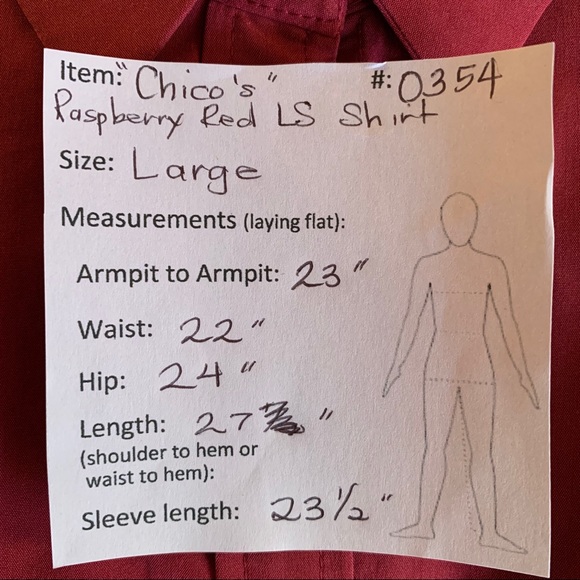 Item: "Chico's" #: 0354
Raspberry Red LS Shirt
Size: Large
Measurements (laying flat):
Armpit to Armpit: 23"
Waist: 22"
Hip: 24"
Length: 27 "
(shoulder to hem or
waist to hem):
Sleeve length: 23 1/2"